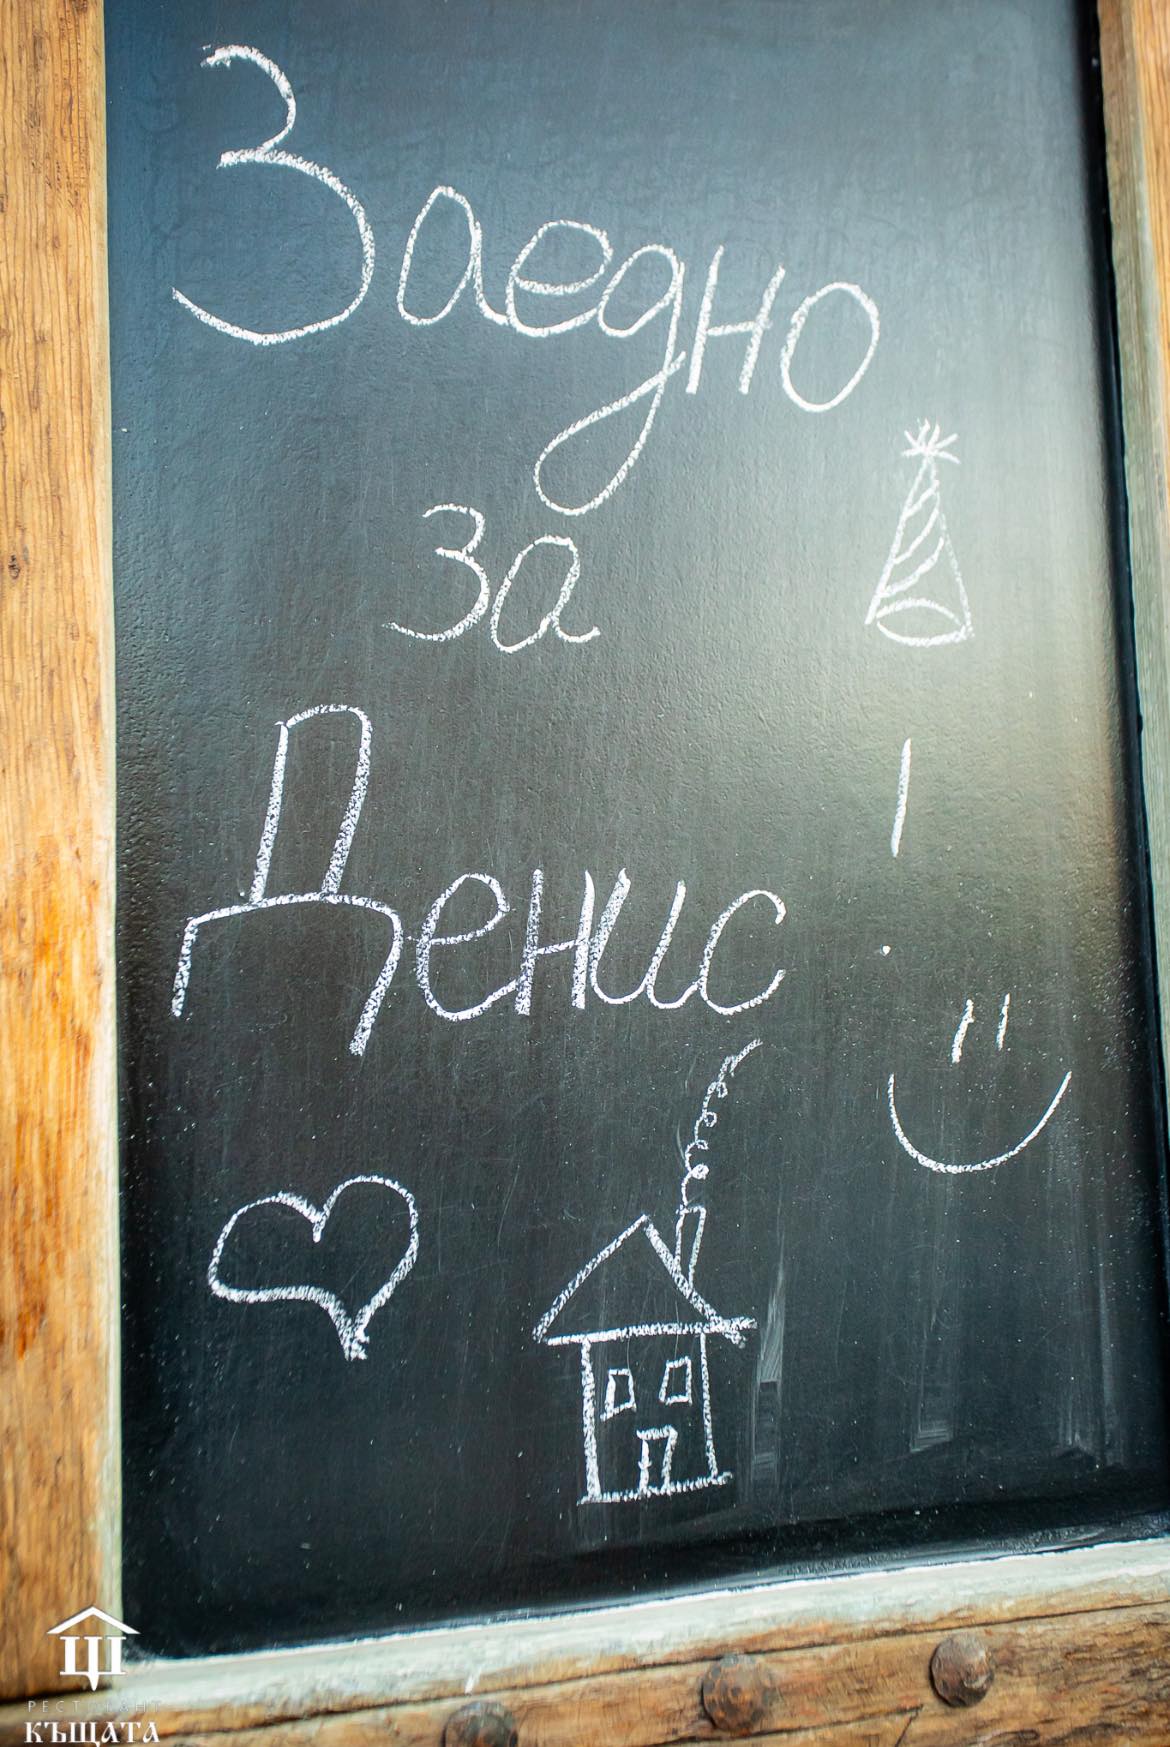 Заедно
за
Денис !
РЕСТОРАНТ
КЪЩАТА